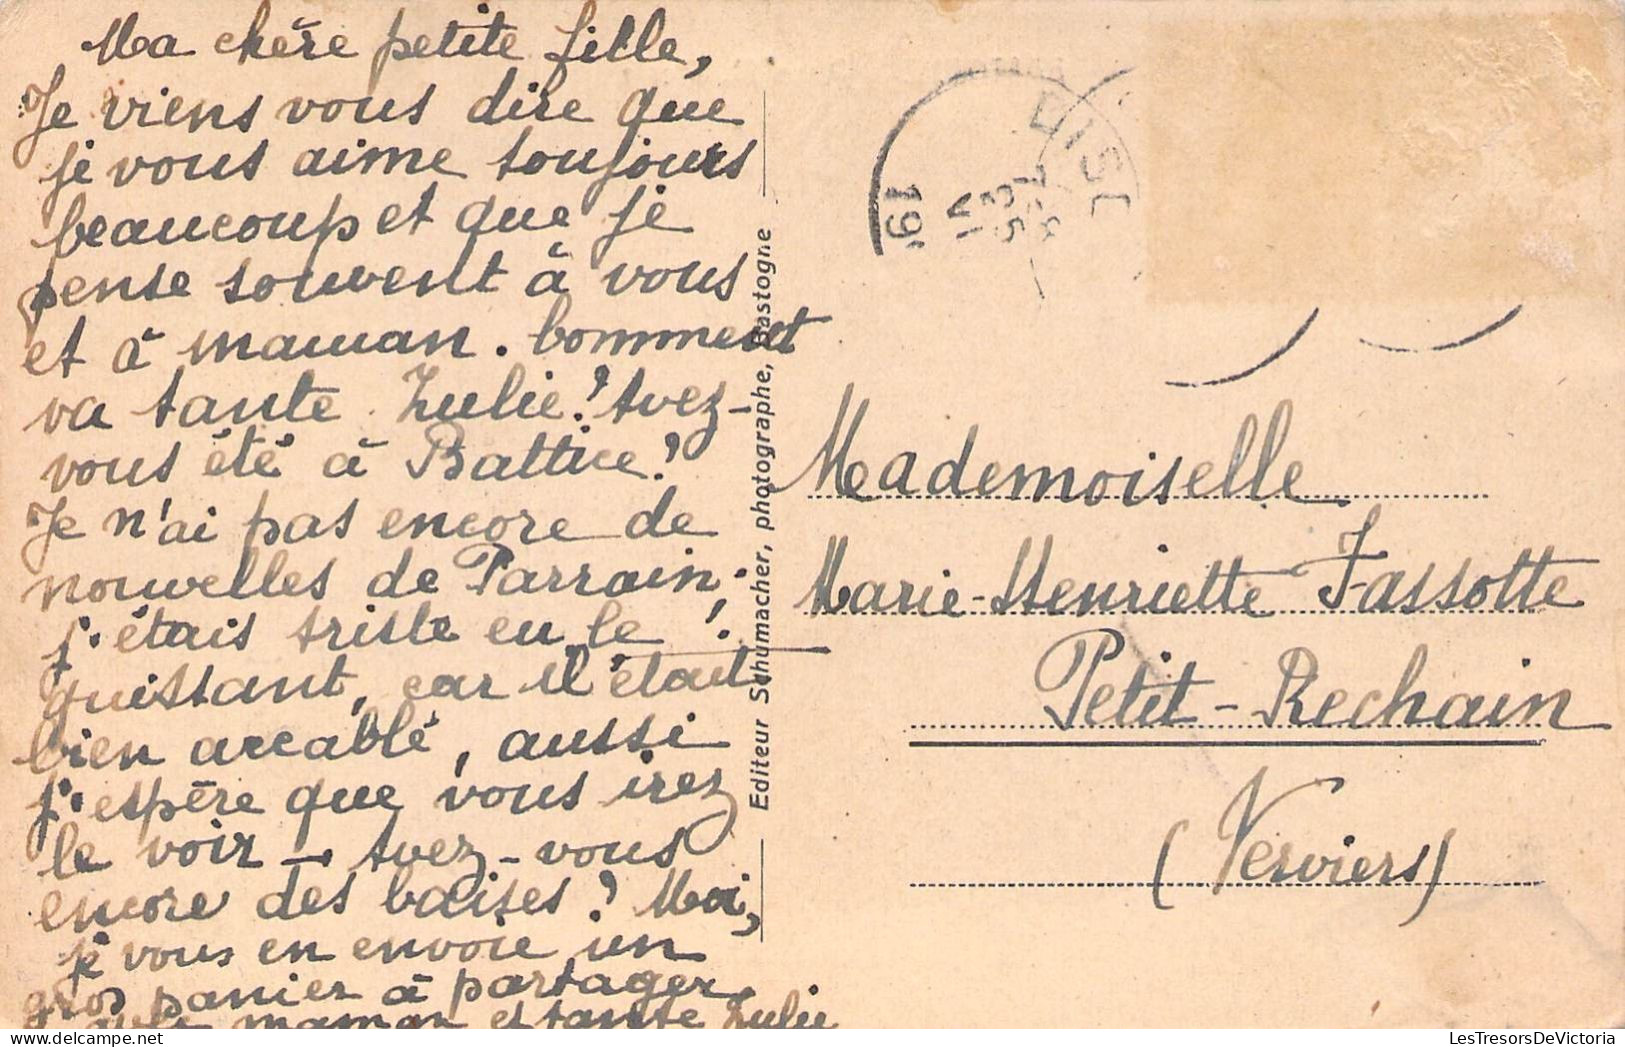 Ma chère petite fille,
Je viens vous dire que
je vous aime toujours
beaucoup et que je
pense souvent à vous
et à maman. Comment
va tante Julie? Avez-
vous été à Battice?
Je n'ai pas encore de
nouvelles de Parrain;
j'étais triste en le
quittant, car il était
bien accablé, aussi
j'espère que vous irez
le voir - Avez-vous
encore des baises? Moi,
je vous en envoie un
gros panier à partager
avec maman et tante Julie
Editeur Schumacher, photographe, Bastogne
19
VI
Mademoiselle
Marie-Henriette Fassotte
Petit-Rechain
(Verviers)
LesTresorsDeVictoria